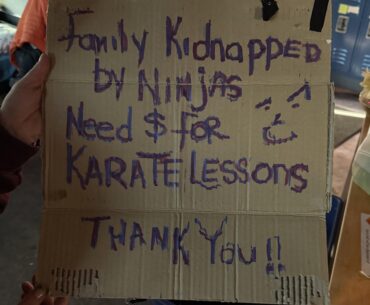 Family Kidnapped
by Ninjas
Need $ for
KARATE Lessons
THANK You!!